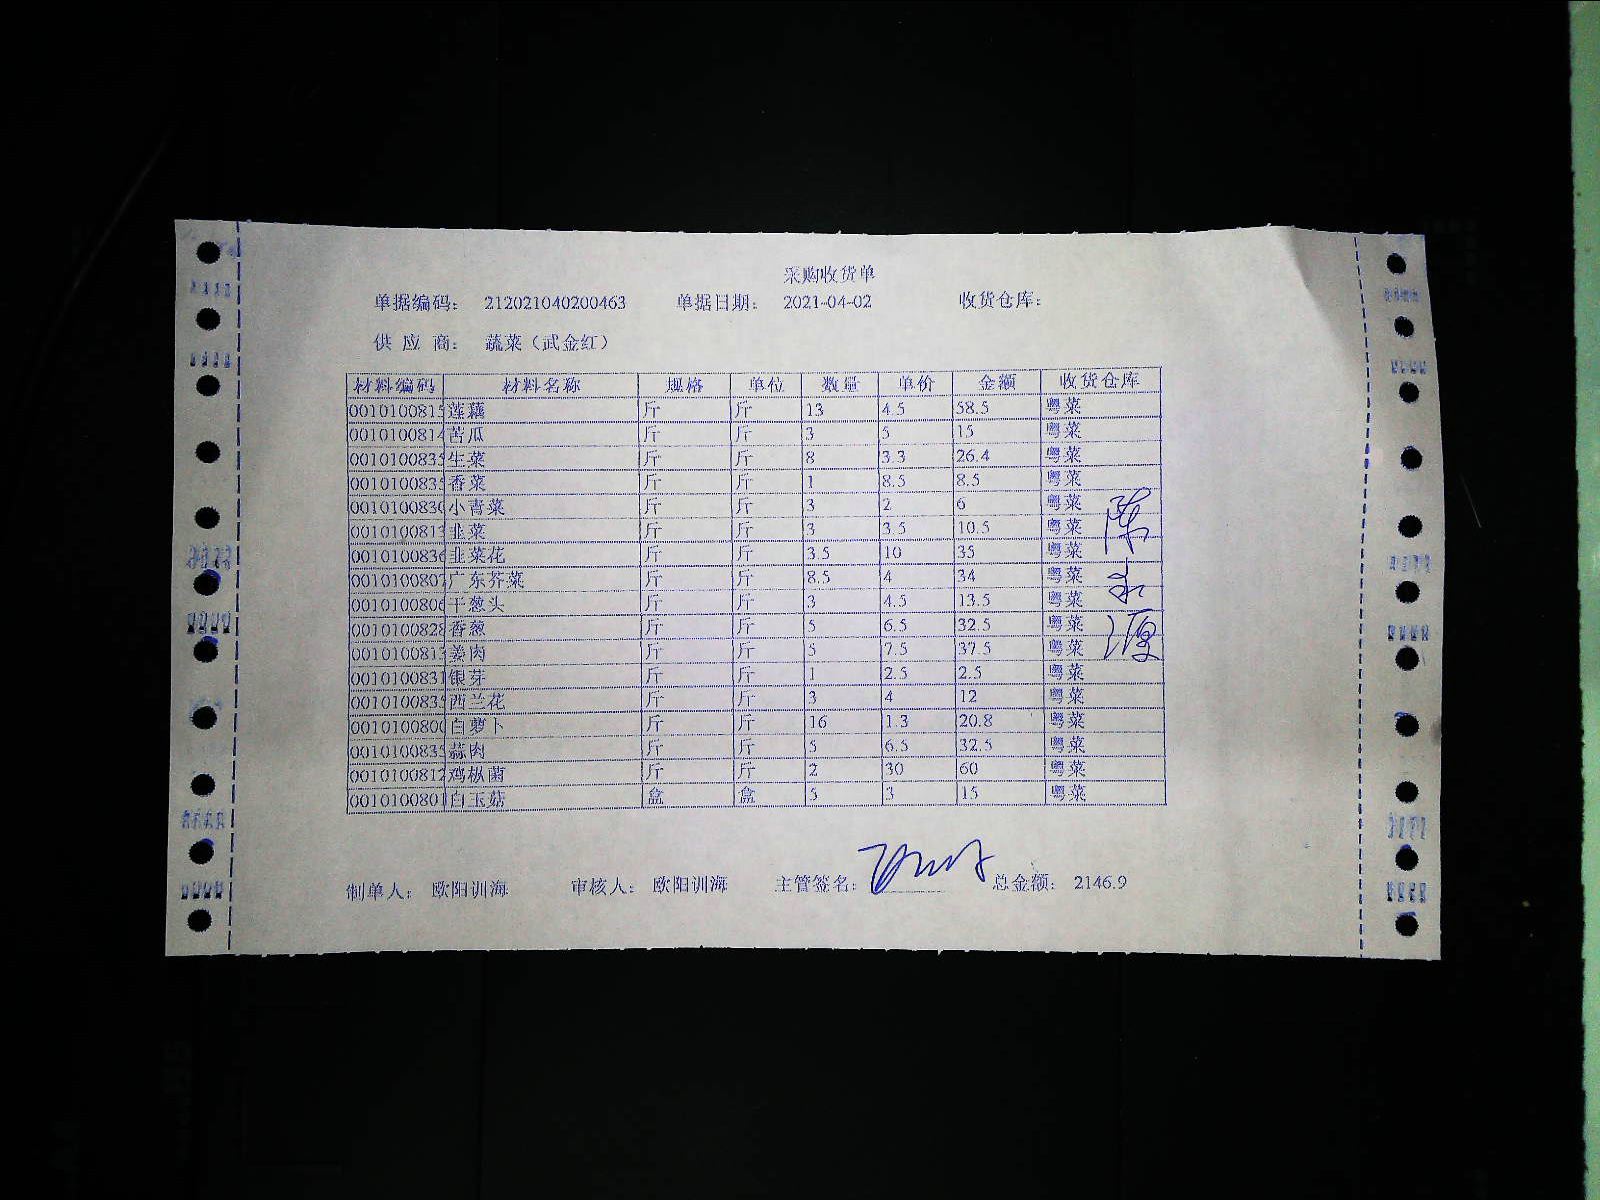 采购收货单
单据编码： 212021040200463 单据日期： 2021-04-02 收货仓库：
供 应 商： 蔬菜（武金红）
材料编码 材料名称 规格 单位 数量 单价 金额 收货仓库
0010100815 莲藕 斤 斤 13 4.5 58.5 粤菜
0010100814 苦瓜 斤 斤 3 5 15 粤菜
0010100835 生菜 斤 斤 8 3.3 26.4 粤菜
0010100835 香菜 斤 斤 1 8.5 8.5 粤菜
001010083 小青菜 斤 斤 3 2 6 粤菜
0010100813 韭菜 斤 斤 3 3.5 10.5 粤菜
0010100836 韭菜花 斤 斤 3.5 10 35 粤菜
0010100807 广东芥菜 斤 斤 8.5 4 34 粤菜
0010100806 干葱头 斤 斤 3 4.5 13.5 粤菜
0010100828 香葱 斤 斤 5 6.5 32.5 粤菜
0010100813 姜肉 斤 斤 5 7.5 37.5 粤菜
0010100831 银芽 斤 斤 1 2.5 2.5 粤菜
0010100835 西兰花 斤 斤 3 4 12 粤菜
001010080 白萝卜 斤 斤 16 1.3 20.8 粤菜
0010100835 蒜肉 斤 斤 5 6.5 32.5 粤菜
0010100812 鸡枞菌 斤 斤 2 30 60 粤菜
0010100801 白玉菇 盒 盒 5 3 15 粤菜
制单人： 欧阳训海 审核人： 欧阳训海 主管签名： 总金额： 2146.9